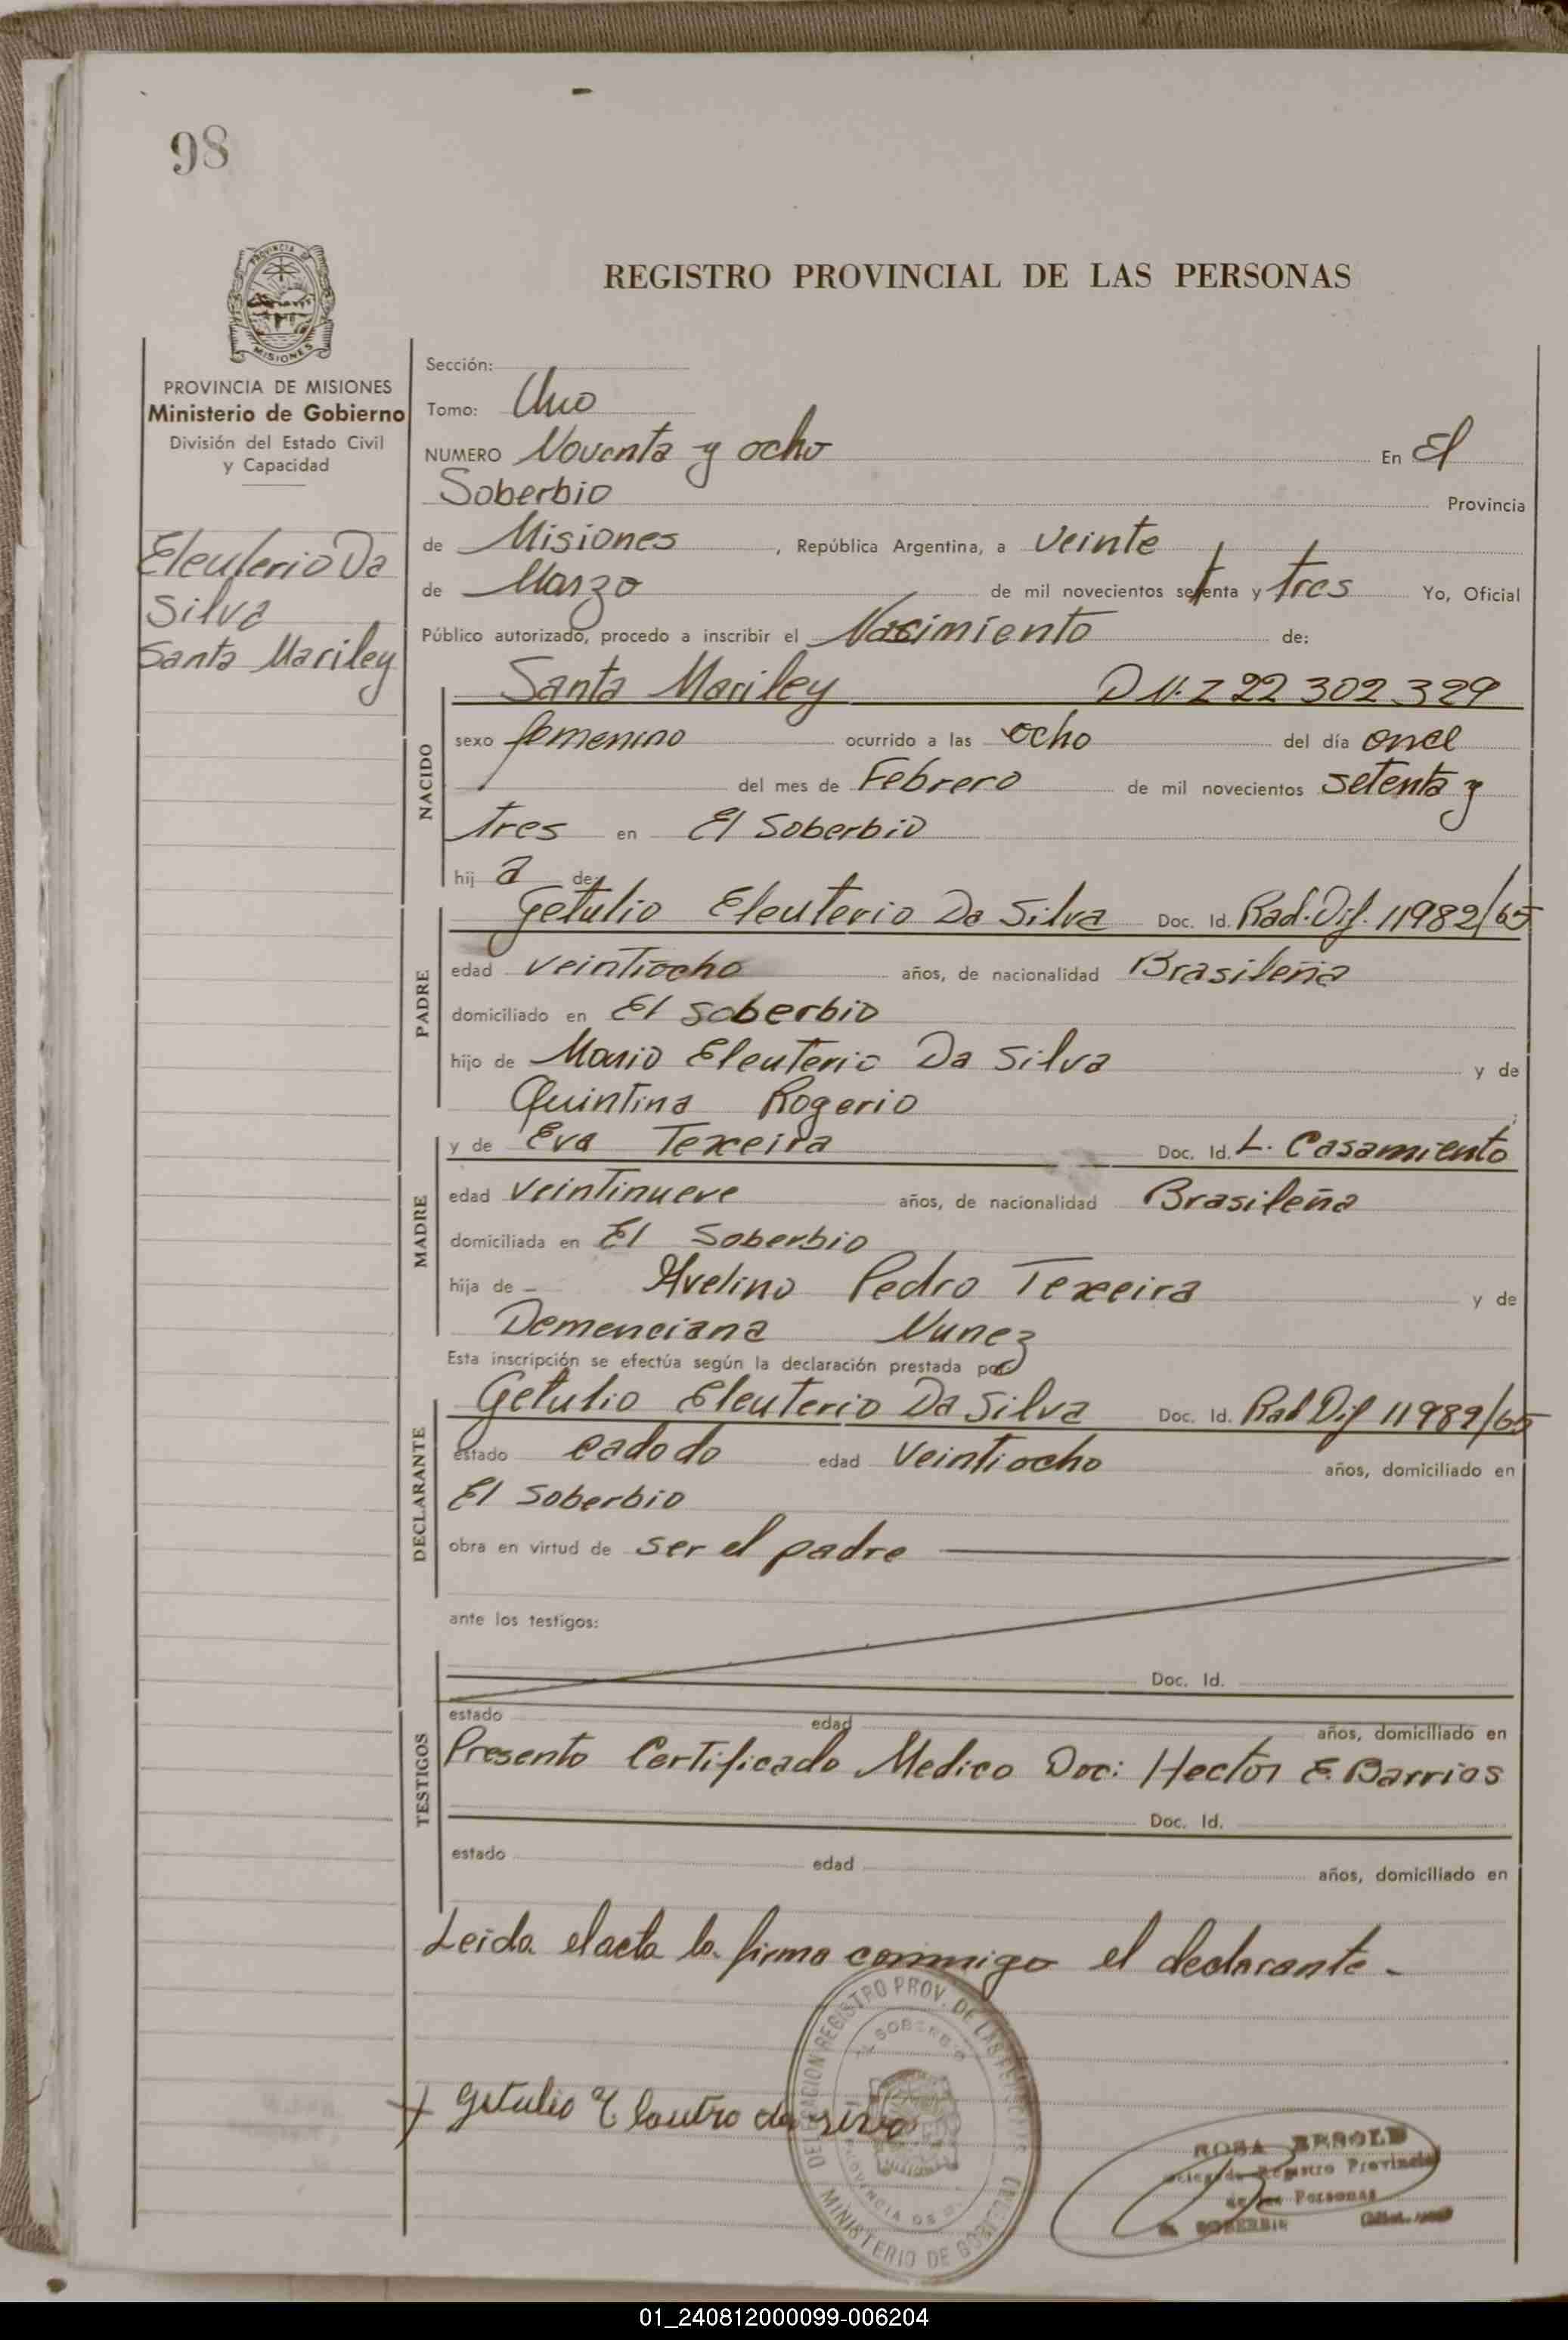 98
PROVINCIA DE
MISIONES
REGISTRO PROVINCIAL DE LAS PERSONAS
PROVINCIA DE MISIONES
Ministerio de Gobierno
División del Estado Civil
y Capacidad
Eleuterio Da
Silva
Santa Mariley
Sección:
Tomo: Uno
NUMERO Noventa y ocho En El
Soberbio Provincia
de Misiones , República Argentina, a veinte
de Marzo de mil novecientos setenta y tres Yo, Oficial
Público autorizado, procedo a inscribir el Nacimiento de:
NACIDO
Santa Mariley D N. I 22 302 329
sexo femenino ocurrido a las ocho del día once
del mes de Febrero de mil novecientos setenta y
tres en El Soberbio
hij a de:
PADRE
Getulio Eleuterio Da Silva Doc. Id. Rad. Dif. 11982/65
edad veintiocho años, de nacionalidad Brasileña
domiciliado en El Soberbio
hijo de Mario Eleuterio Da Silva y de
Quintina Rogerio
MADRE
y de Eva Texeira Doc. Id. L. Casamiento
edad veintinueve años, de nacionalidad Brasileña
domiciliada en El Soberbio
hija de Avelino Pedro Texeira y de
Demenciana Nunez
Esta inscripción se efectúa según la declaración prestada por:
DECLARANTE
Getulio Eleuterio Da Silva Doc. Id. Rad Dif 11989/65
estado cadodo edad veintiocho años, domiciliado en
El Soberbio
obra en virtud de ser el padre
ante los testigos:
TESTIGOS
Doc. Id.
estado edad años, domiciliado en
Presento Certificado Medico Doc: Hector E. Barrios
Doc. Id.
estado edad años, domiciliado en
Leida el acta la firma conmigo el declarante.
DELEGACION REGISTRO PROV. DE LAS PERSONAS
EL SOBERBIO
PROVINCIA DE
MINISTERIO DE GOBIERNO
Getulio
ROSA
Registro Provincial
de las Personas
EL SOBERBIO
01_240812000099-006204